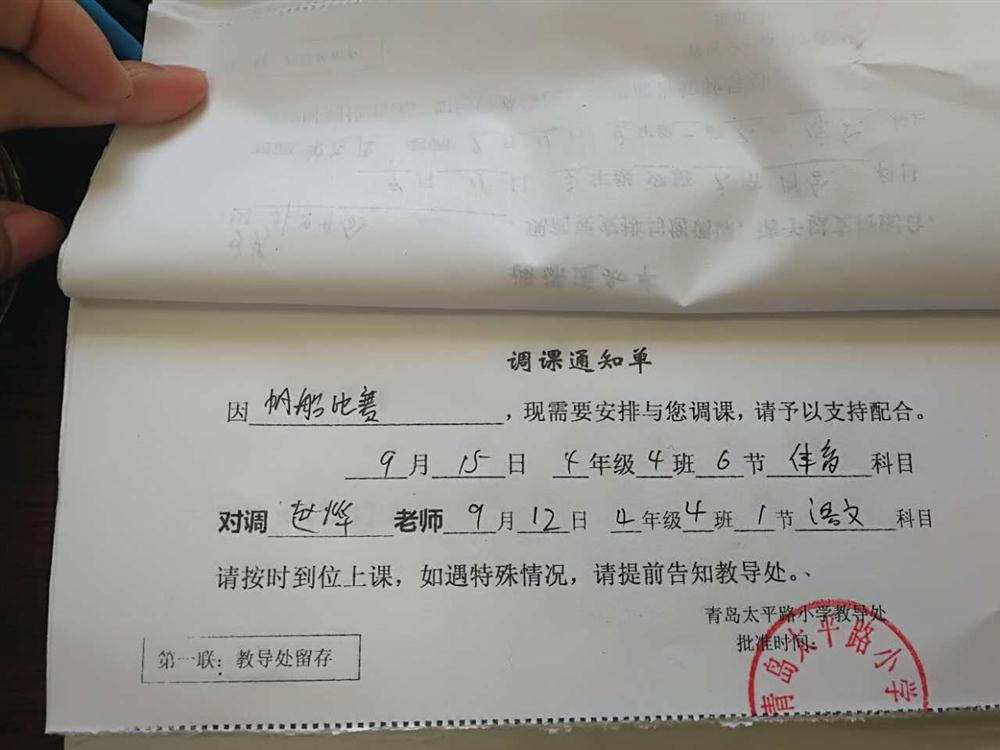 调课通知单
因帆船比赛，现需要安排与您调课，请予以支持配合。
9月15日 4年级4班6节体育科目
对调赵烨老师9月12日 4年级4班1节语文科目
请按时到位上课，如遇特殊情况，请提前告知教导处。、
青岛太平路小学教导处
批准时间：
第一联：教导处留存
青岛太平路小学